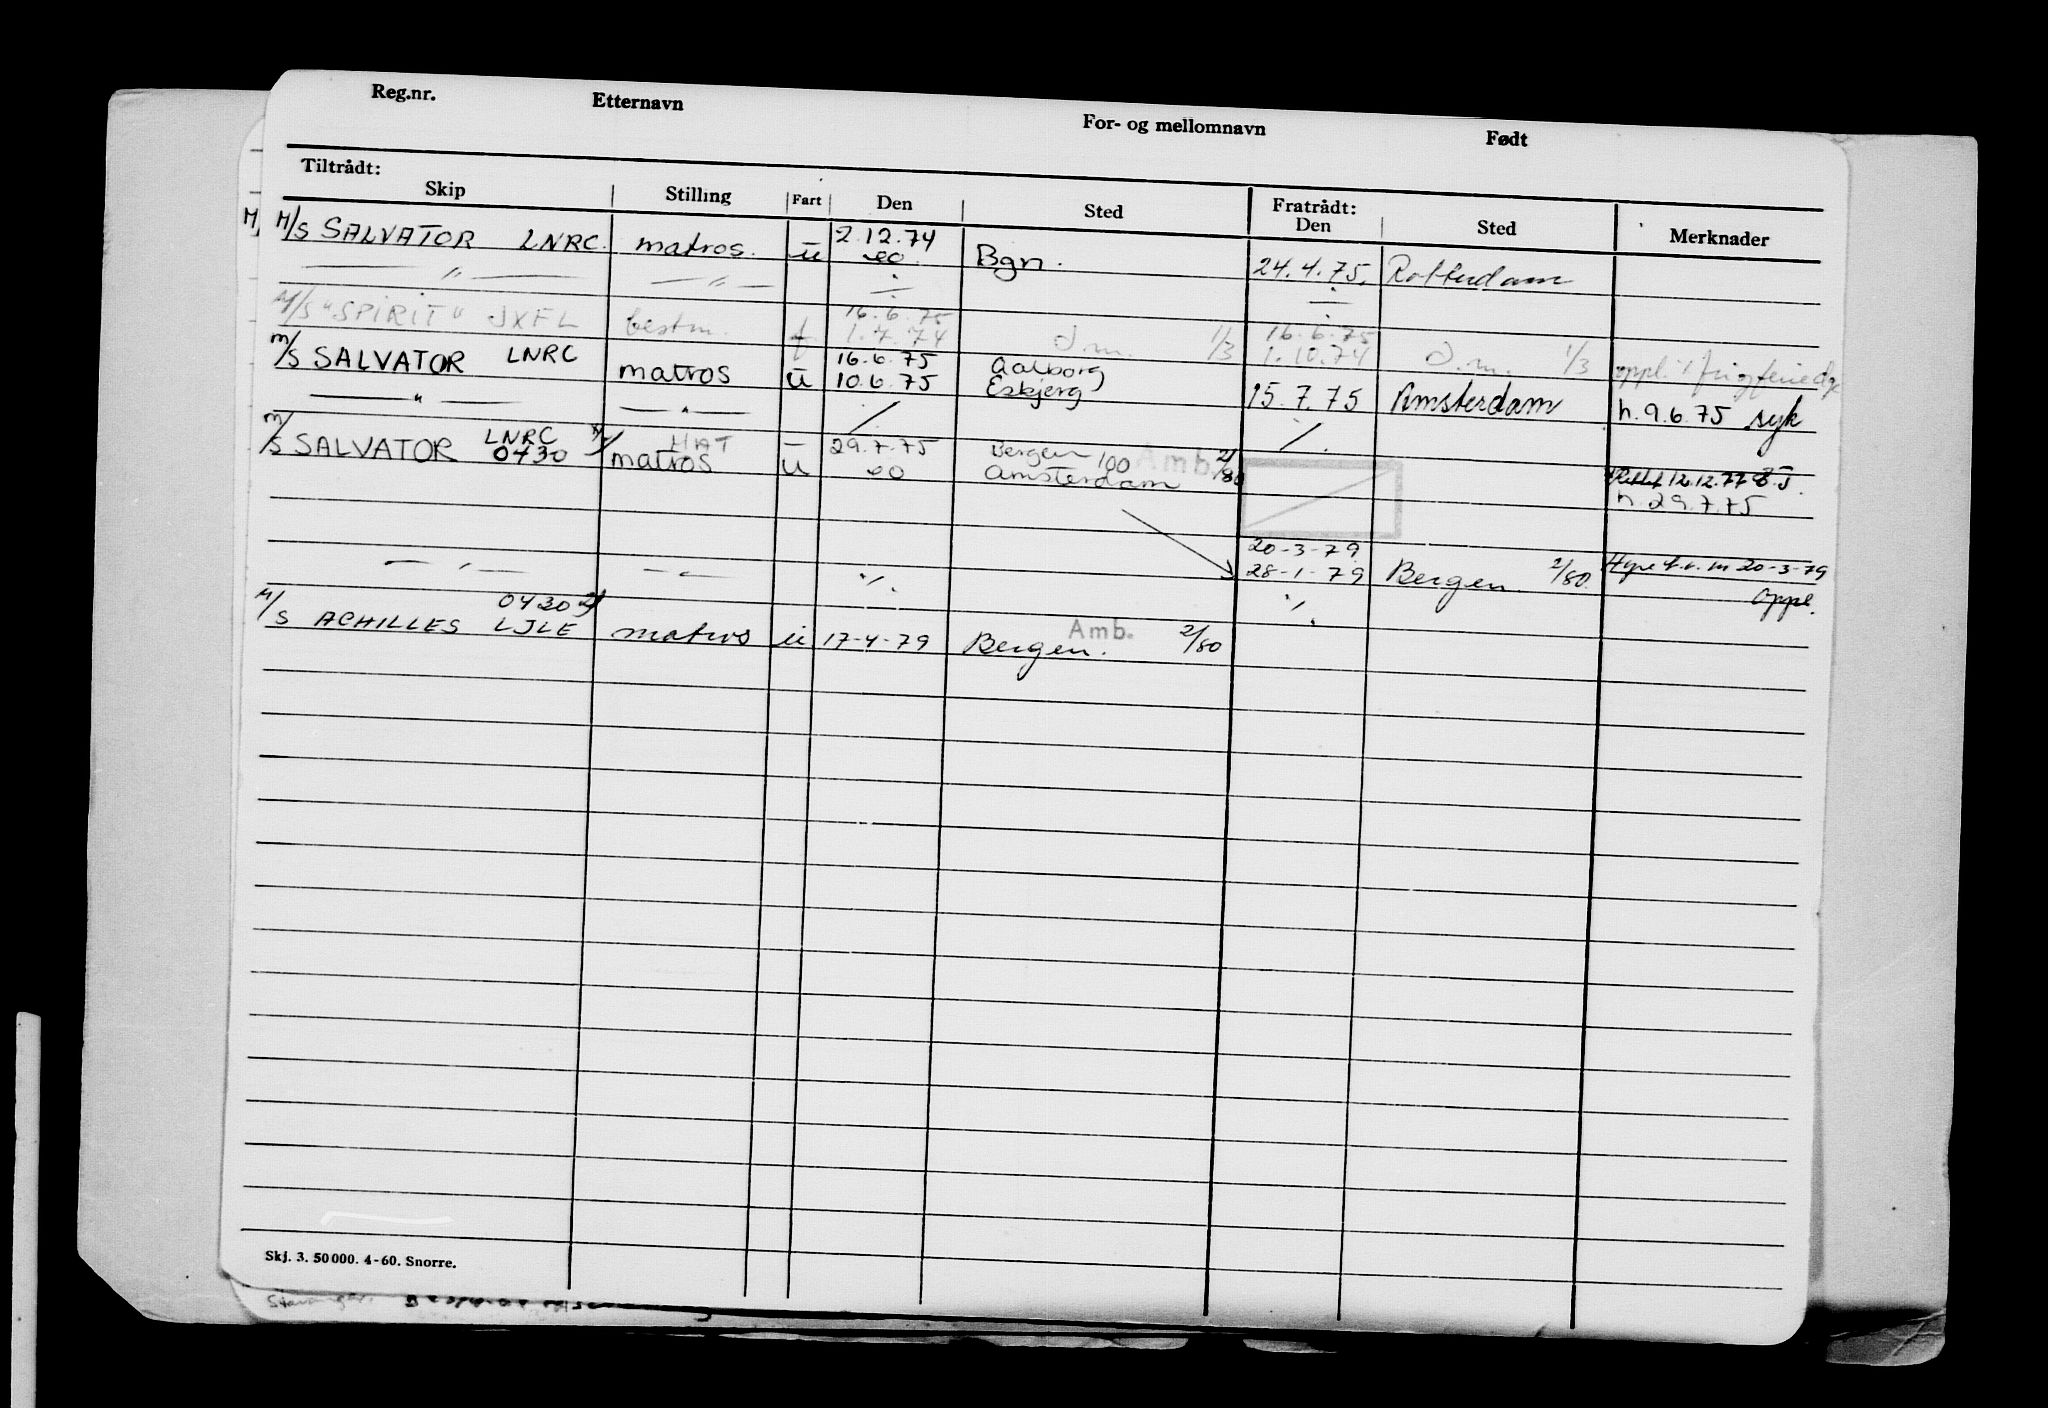 Reg.nr. Etternavn For- og mellomnavn Født
Tiltrådt: Fratrådt:
Skip Stilling Fart Den Sted Den Sted Merknader
M/S SALVATOR LNRC. matros. ū 2.12.74 Bgn. 24.4.75. Rotterdam
— " — — " —
M/S "SPIRIT" JXFL bestm. f 16.6.75 16.6.75
1.7.74 D.m. 1/3 1.10.74 D.m. 1/3 oppl.
M/S SALVATOR LNRC matros ū 16.6.75 Aalborg
10.6.75 Esbjerg 15.7.75 Amsterdam h. 9.6.75 syk
— " — — " — ./. ./.
M/S SALVATOR LNRC MAT – 29.7.75 Bergen 100 Amb. 2/80
0430 matros ū Amsterdam 12.12.77
h. 29.7.75
20-3-79
— " — — " — ./. 28-1-79 Bergen. 2/80 20-3-79
oppl.
M/S ACHILLES 0430 ./.
LJLE matros ū 17-4-79 Bergen. Amb. 2/80
Skj. 3. 50000. 4-60. Snorre.
Stavanger.